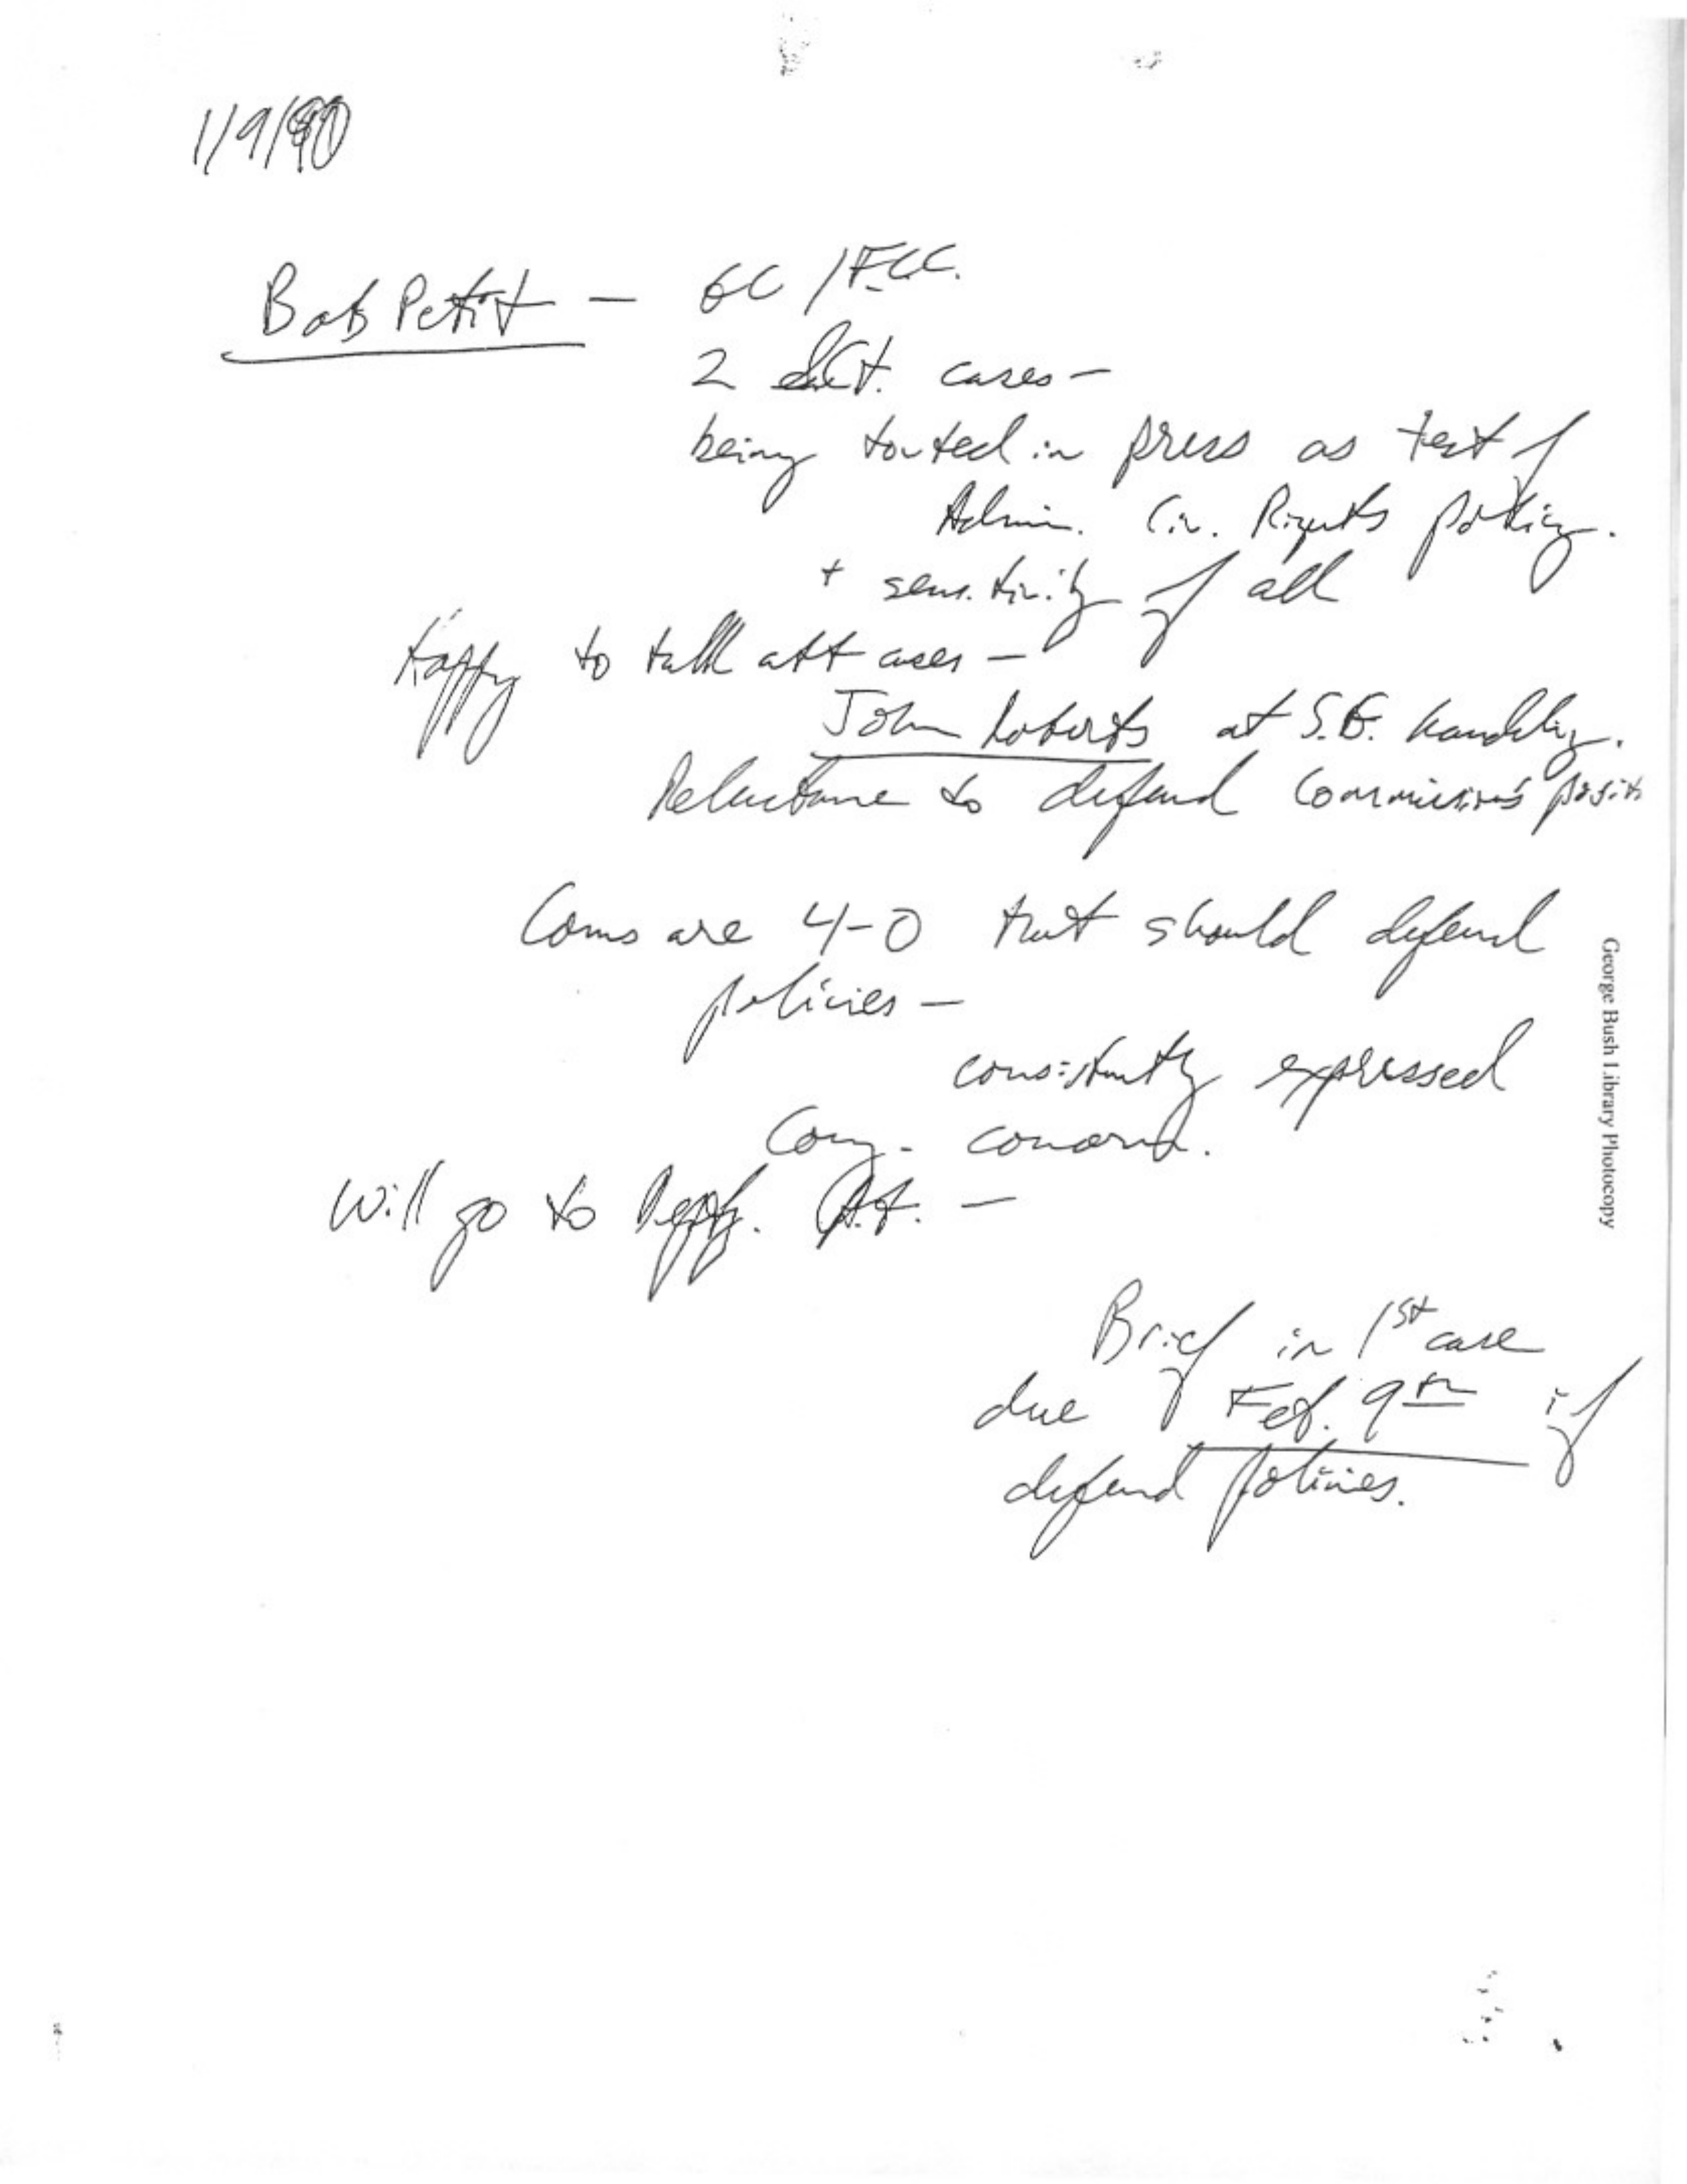 1/9/90
Bob Petit — GC / FCC.
2 S.Ct. cases —
being touted in press as test of
Admin. Civ. Rights policy.
+ sensitivity of all
Happy to talk abt cases —
John Roberts at S.G. handling.
Reluctance to defend Commission's posit
Coms are 4-0 that should defend
policies —
consistently expressed
Cong. concern.
Will go to Depty. Att. —
Brief in 1st case
due Feb. 9th if
defend policies.
George Bush Library Photocopy